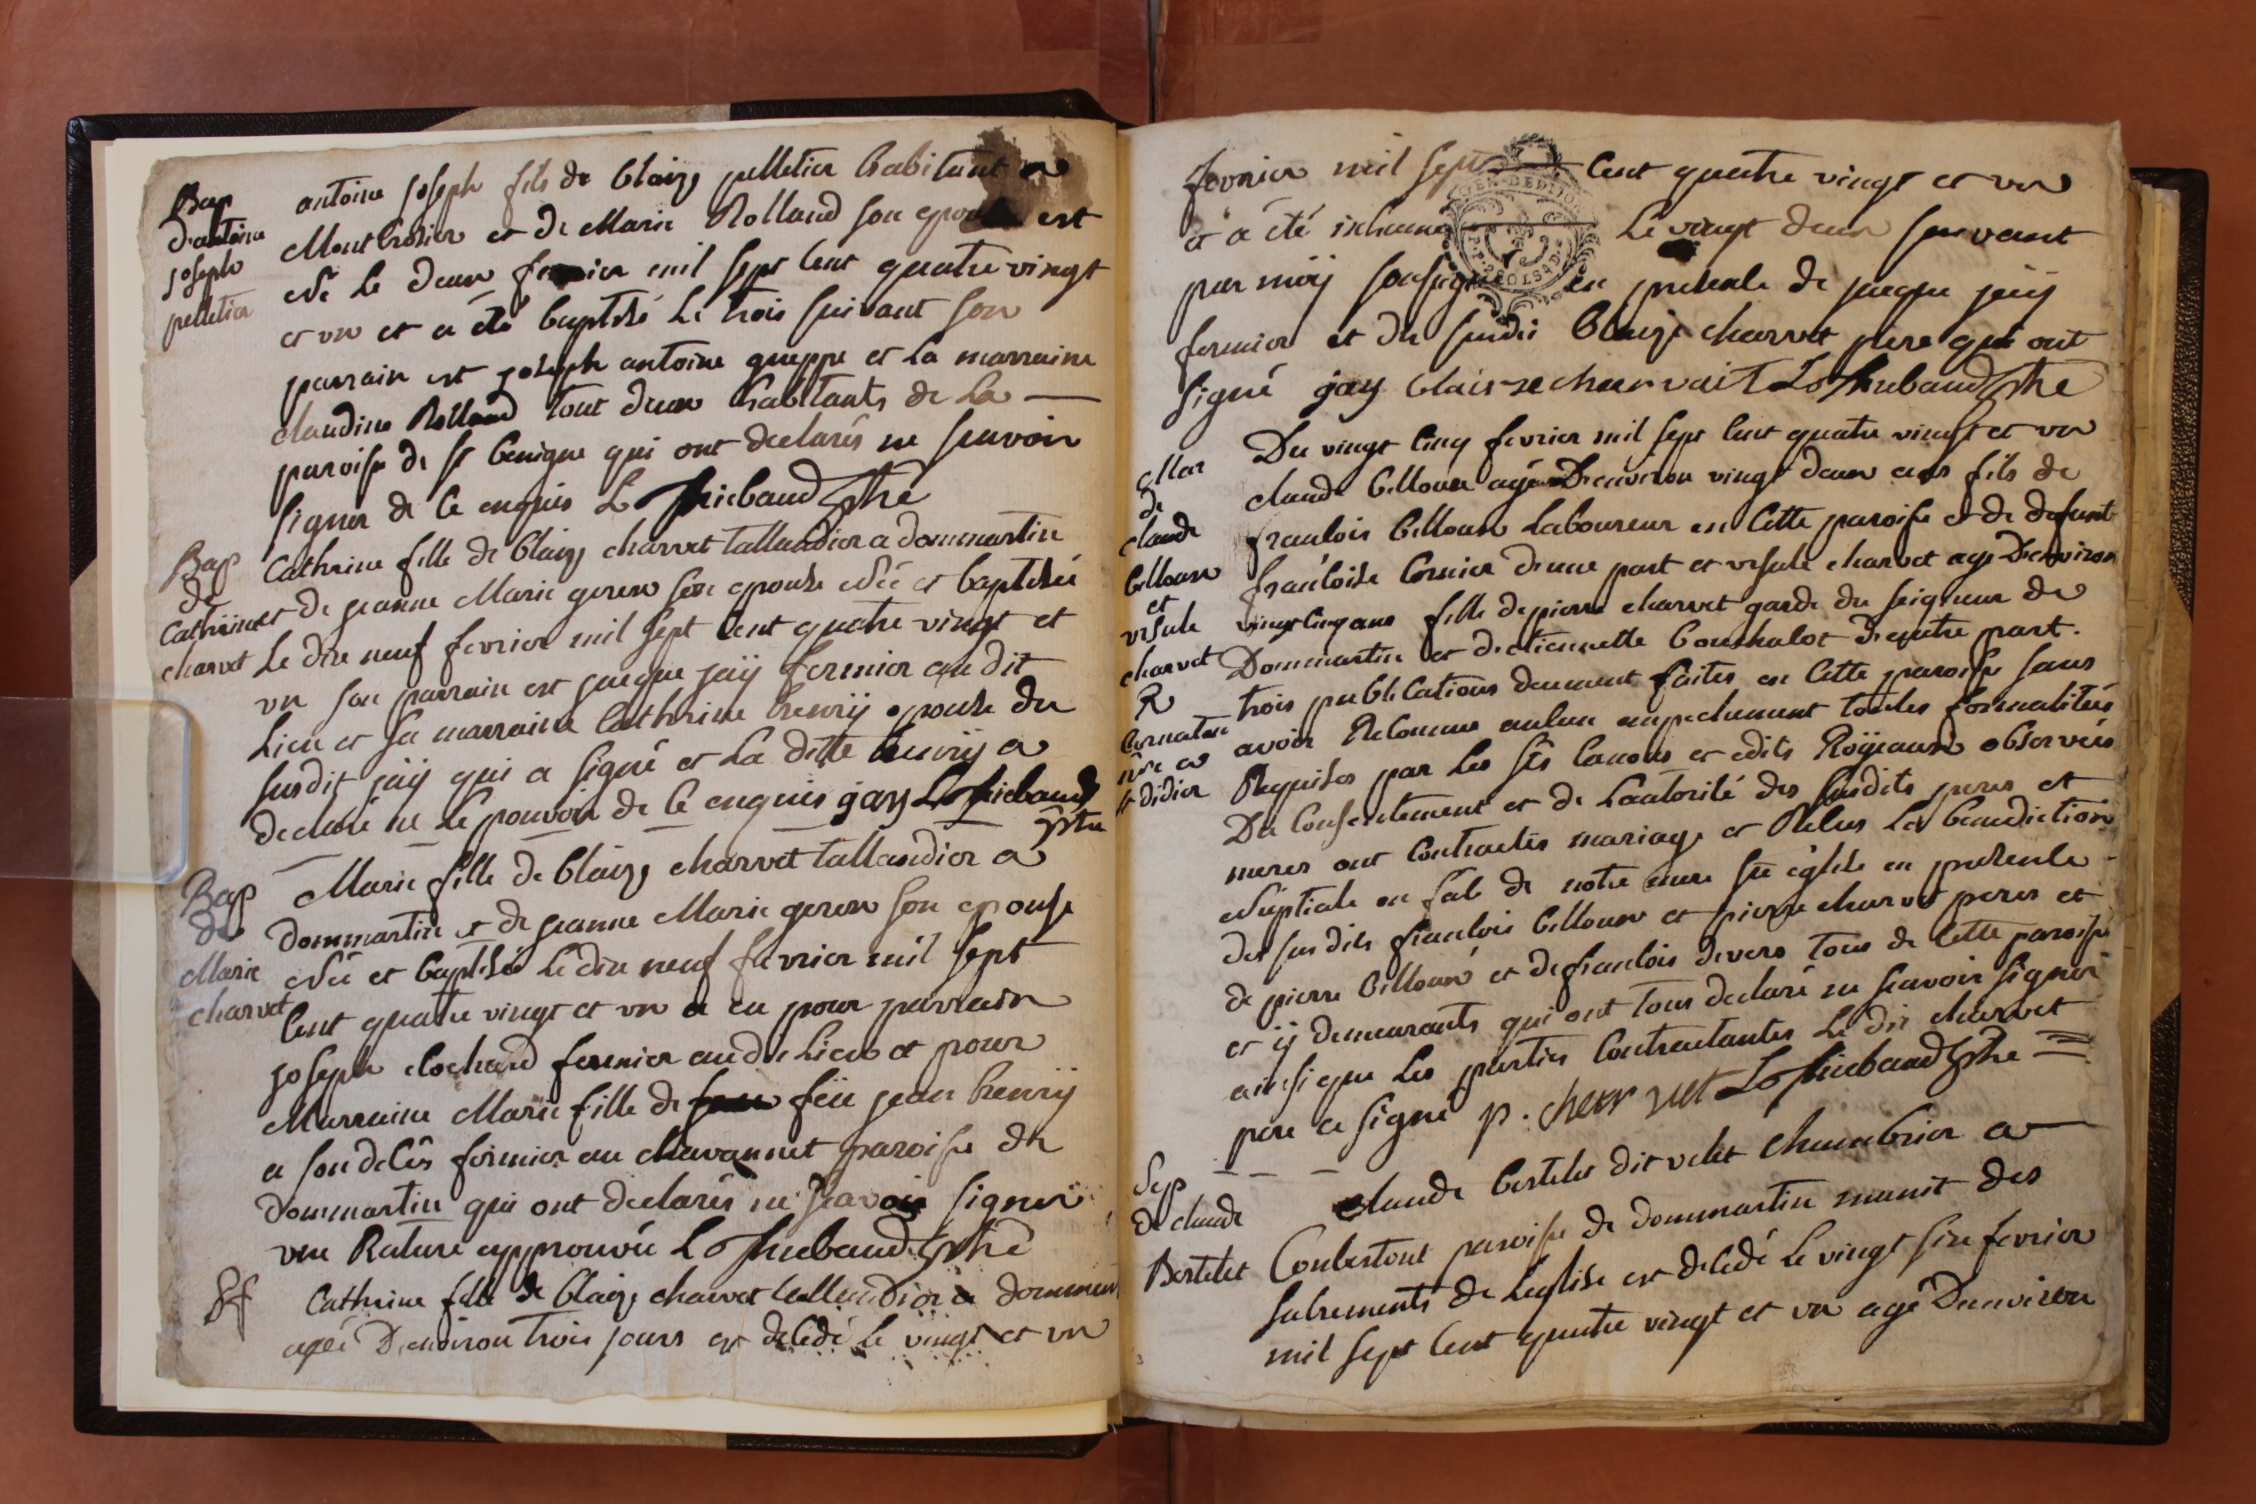 Bap
d'antoine
joseph
pelletier
antoine joseph fils de blaize pelletier habitant a
Montbrosier et de Marie Rolland son epouse est
né le deux fevrier mil sept cent quatre vingt
et un et a été baptisé le trois suivant son
parrain est joseph antoine gueppe et la marraine
claudine Rolland tout deux habitants de la
paroise de st benigne qui ont declarés ne scavoir
signer de ce enquis L Thiebaud ptre
Bap
de
Cathrine
charvet
Cathrine fille de blaize charvet tallandier a dommartin
et de jeanne Marie geren son epouse née et baptisée
le dix neuf fevrier mil sept cent quatre vingt et
un son parrain est jacque jaÿ fermier au dit
lieu et sa marraine Cathrine henrÿ epouse du
susdit jaÿ qui a signé et la ditte henrÿ a
declaré ne le pouvoir de ce enquis jay L Thiebaud
ptre
Bap
de
Marie
charvet
Marie fille de blaize charvet tallandier a
dommartin et de jeanne Marie geren son epouse
née et baptisée le dix neuf fevrier mil sept
cent quatre vingt et un a eu pour parrain
joseph clochard fermier au dt lieu et pour
Marraine Marie fille de feüe jean henrÿ
a son decès fermier au chavannet paroise de
dommartin qui ont declarés ne scavoir signer
une Rature approuvée L Thiebaud ptre
Sf
Cathrine fille de blaize charvet tallandier a dommar
agée D'environ trois jours est decedé le vingt et un
fevrier mil sept cent quatre vingt et un
et a été inhumé le vingt deux suivant
par moÿ soussigné en presence de jacque jaÿ
fermier et du susdit blaize charvet pere qui ont
signé jay blaise charvait L Thiebaud ptre
Mar
de
claude
billoux
et
ursule
charvet
R
st didier
Du vingt cinq fevrier mil sept cent quatre vingt et un
claude billoux agé D'environ vingt deux ans fils de
francois billoux Laboureur en cette paroise et de defunte
francoise cornier d'une part et ursule charvet agé D'environ
vingt cinq ans fille de pierre charvet garde du seigneur de
Dommartin et d'etiennette bonthalot d'autre part.
trois publications deument faites en cette paroise sans
avoir Reconnue aulcun empechement toutes formalitées
Requises par les sts canons et edits Roÿeaux observées
Du consentement et de l'autorité des susdits peres et
meres ont contractés mariage et Recus la benediction
Nuptiale en face de notre mere ste eglise en presence
des susdits francois billoux et pierre charvet peres et
de pierre billoux et de francois devers tous de cette paroise
et ÿ demeurants qui ont tous declaré ne scavoir signer
ainsi que les parties contractantes le dit charvet
pere a signé p. charvet L Thiebaud ptre
Sep
de claude
Bertelet
claude bertelet dit velet chambrier a
Conbertout paroise de dommartin munit des
sacrements de l'eglise est decedé le vingt six fevrier
mil sept cent quatre vingt et un agé D'environ